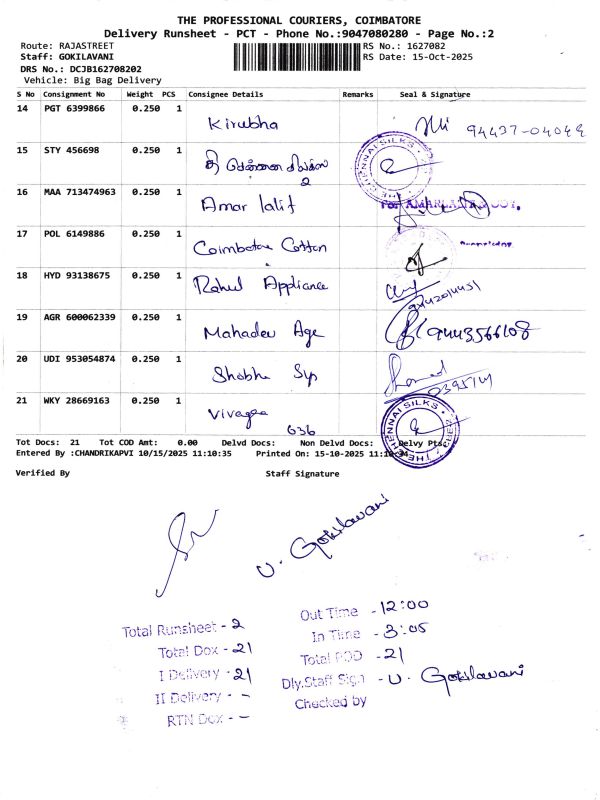 THE PROFESSIONAL COURIERS, COIMBATORE
Delivery Runsheet - PCT - Phone No.:9047080280 - Page No.:2
Route: RAJASTREET
RS No.: 1627082
Staff: GOKILAVANI
RS Date: 15-Oct-2025
DRS No.: DCJB162708202
Vehicle: Big Bag Delivery
S No Consignment No Weight PCS Consignee Details Remarks Seal & Signature
14 PGT 6399866 0.250 1 Kirubha
15 STY 456698 0.250 1 தி சென்னை சில்க்ஸ்
2
THE CHENNAI SILKS
16 MAA 713474963 0.250 1 Amar lalit
For AMAR
17 POL 6149886 0.250 1 Coimbatore Cotton
18 HYD 93138675 0.250 1 Rahul Appliance
19 AGR 600062339 0.250 1 Mahadev Age 9443566108
20 UDI 953054874 0.250 1 Shobha Sys
21 WKY 28669163 0.250 1
636
THE CHENNAI SILKS
Tot Docs: 21 Tot COD Amt: 0.00 Delvd Docs: Non Delvd Docs: Delvy Pts:
Entered By :CHANDRIKAPVI 10/15/2025 11:10:35 Printed On: 15-10-2025
Verified By Staff Signature
U. Gokilavani
Total Runsheet - 2
Total Dox - 21
I Delivery - 21
II Delivery - -
RTN Dox - -
Out Time - 12:00
In Time - 3:05
Total POD - 21
Dly.Staff Sign - U. Gokilavani
Checked by